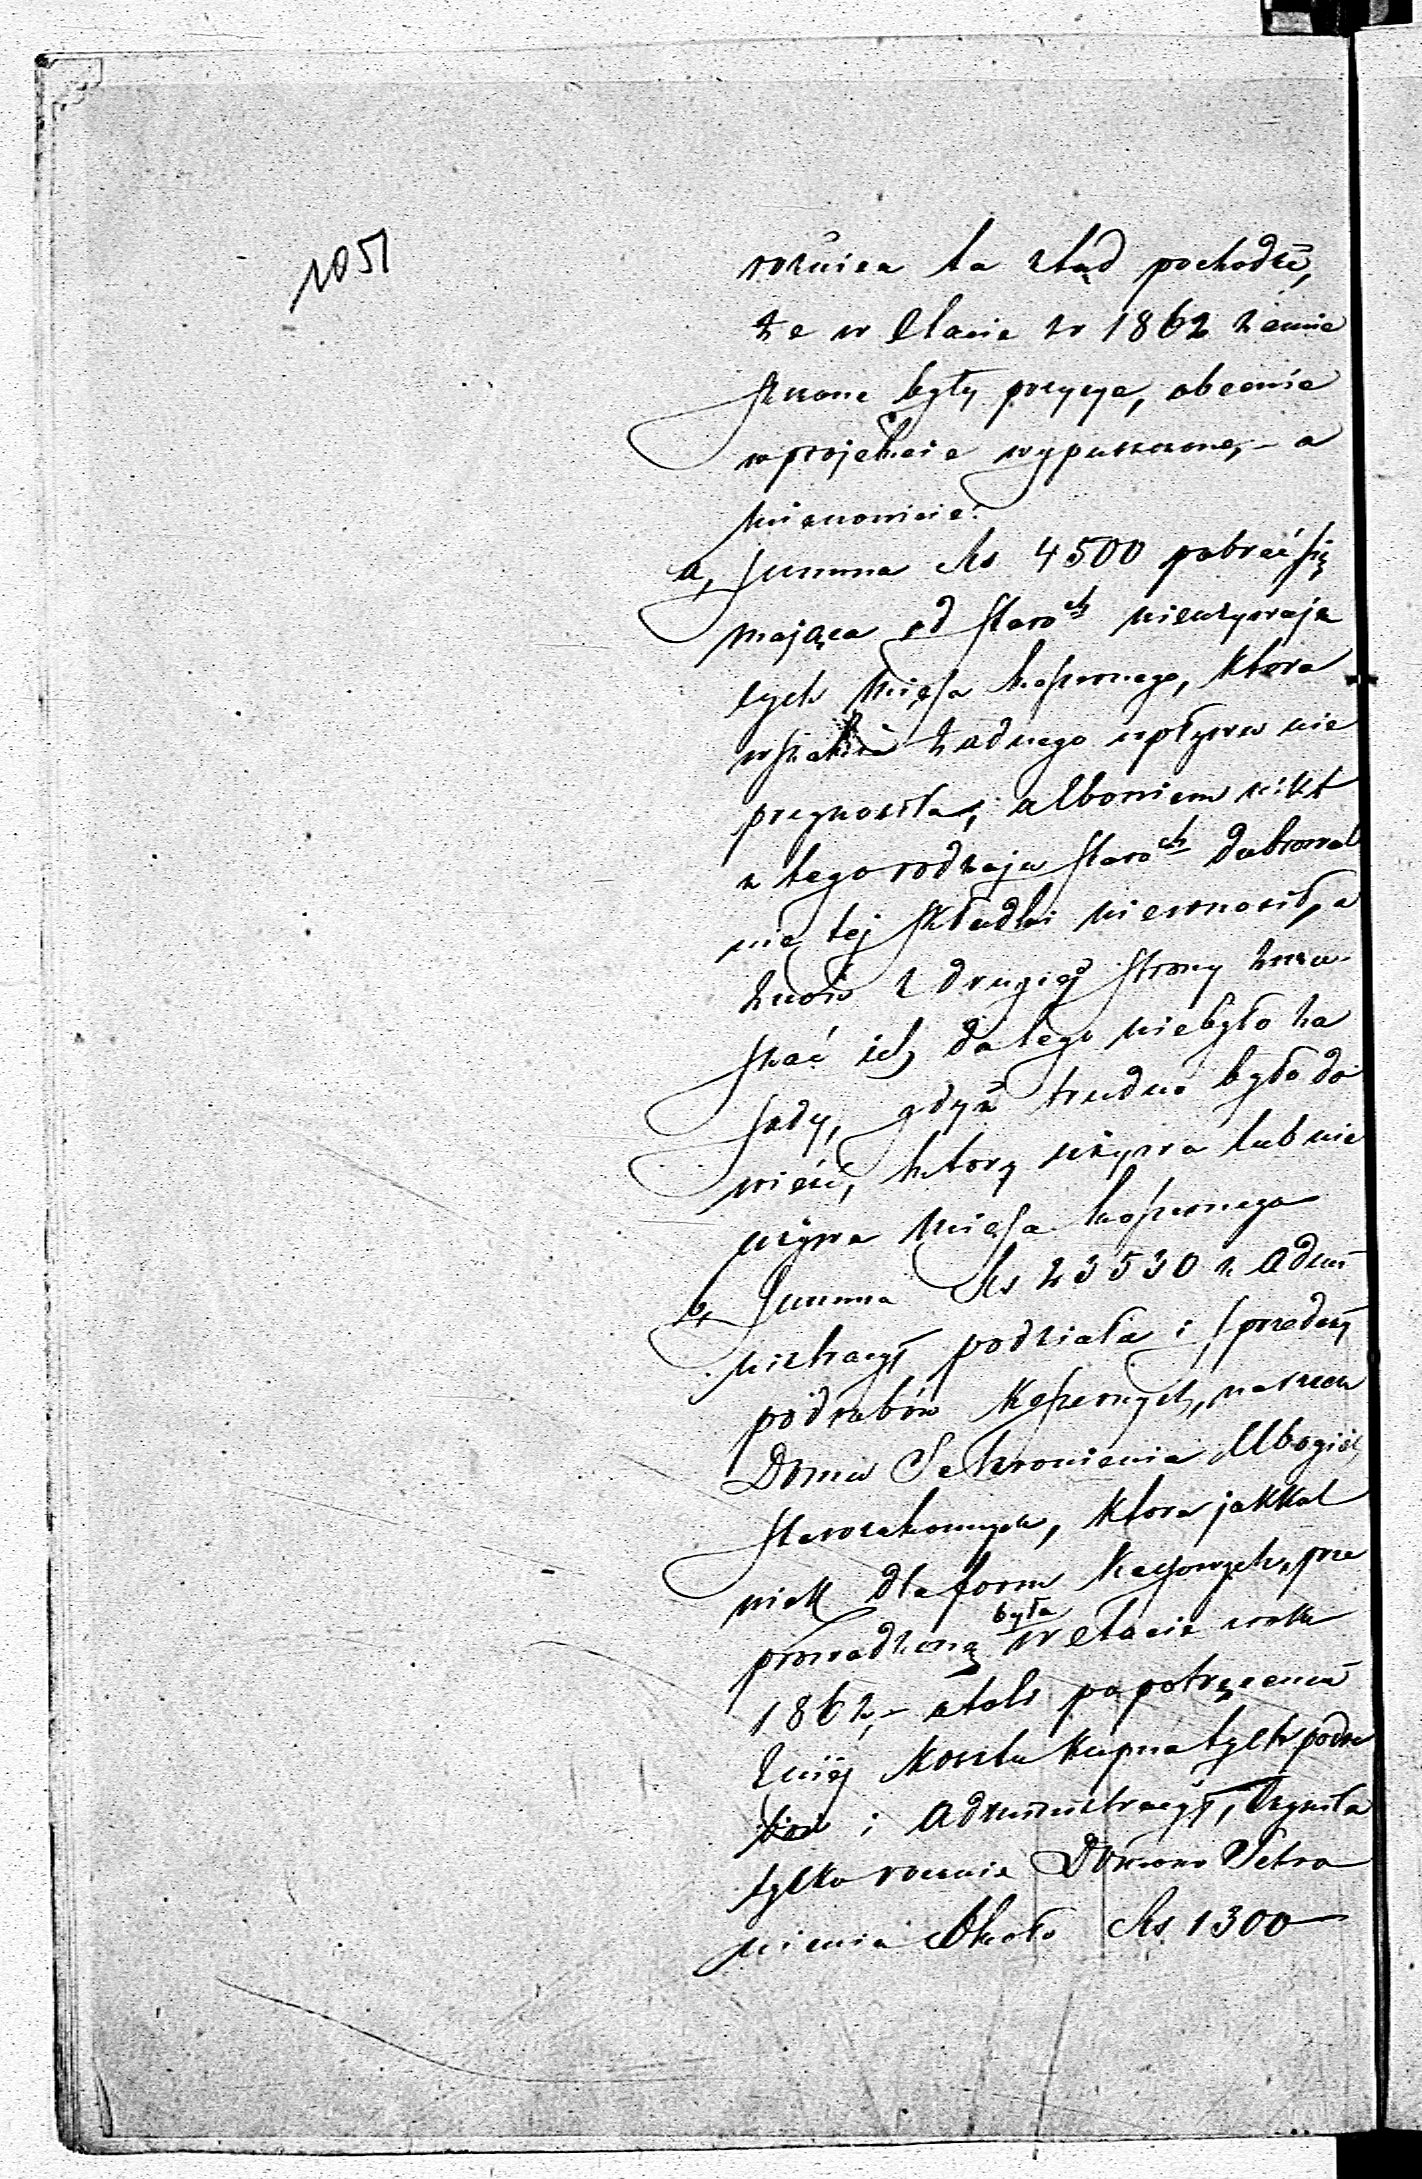 1051
rożnica ta ztąd pochodzi,
że w Etacie zr 1862 zamie
szczone były pozycye, obecnie
w projekcie wypuszczone, - a
mianowicie:
a, Summa Rs 4500 pobrać się
mająca od Staroch nieużywają
cych mięsa koszernego, ktora
wszakże żadnego wpływu nie
przynosiła, albowiem nikt
z tego rodzaju Staroch dobrowol
nie tej składki niewnosił, a
znów z drugiej strony zmu
szać ich do tego niebyło za
sady, gdyż trudno było do
wieść, ktory używa lub nie
używa mięsa koszernego
b, Summa Rs 23530 z Admi
nistracyi podziału i sprzedaży
podrabów koszernych, na rzecz
Domu Schronienia Ubogich
Starozakonnych, ktora jakkol
wiek dla form kassowych prze
prowadzoną była w etacie roku
1862, - atoli po potrąceniu
z niej kosztu kupna tych podra
bów i Administracyi, czyniła
tylko rocznie Domowi Schro
nienia około Rs 1300